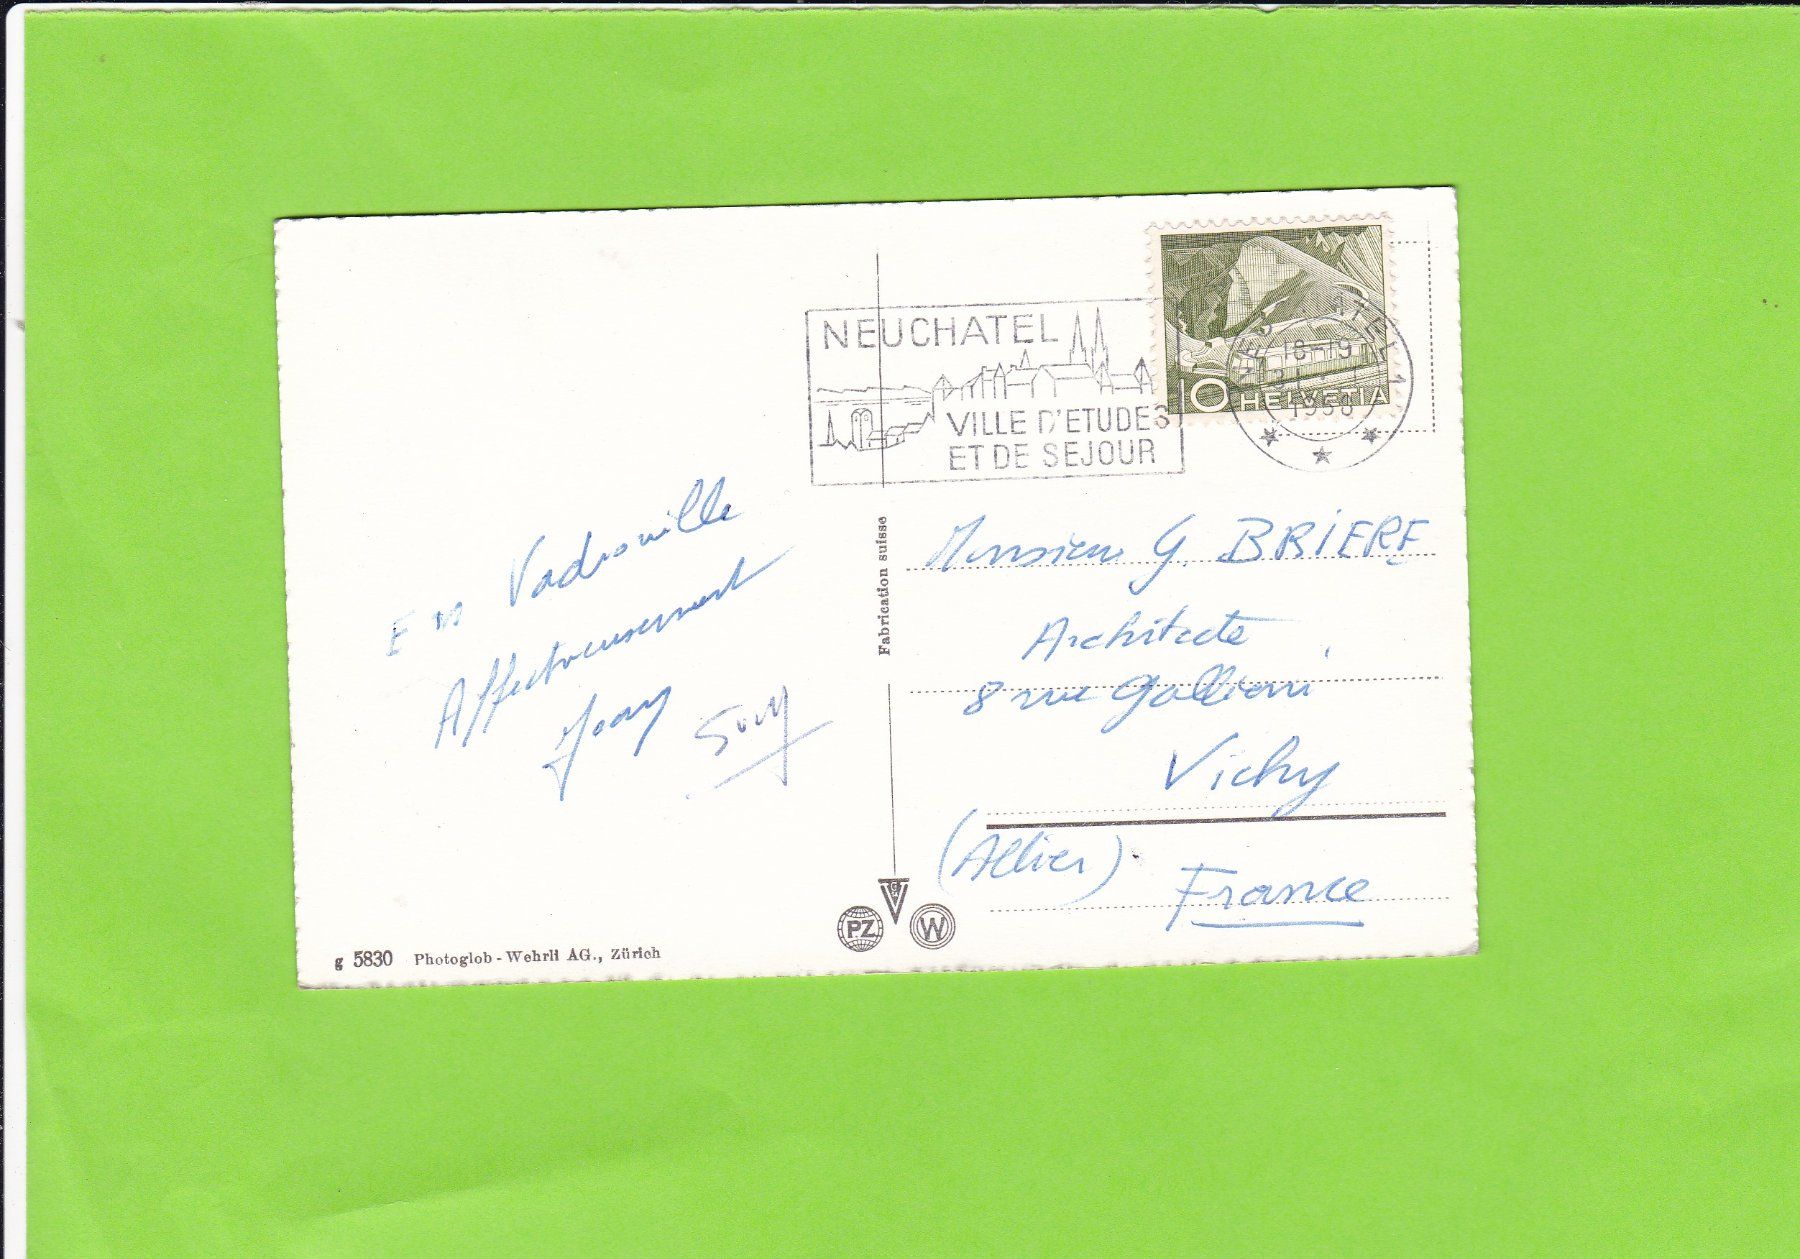 En Vadrouille
Affectueusement
g 5830 Photoglob - Wehrli AG., Zürich
Fabrication suisse
PZ
W
NEUCHATEL
VILLE D'ETUDES
ET DE SEJOUR
18-19
1958
10 HELVETIA
Monsieur G. BRIERE
Architecte
8 rue Gallieni
Vichy
(Allier)
France